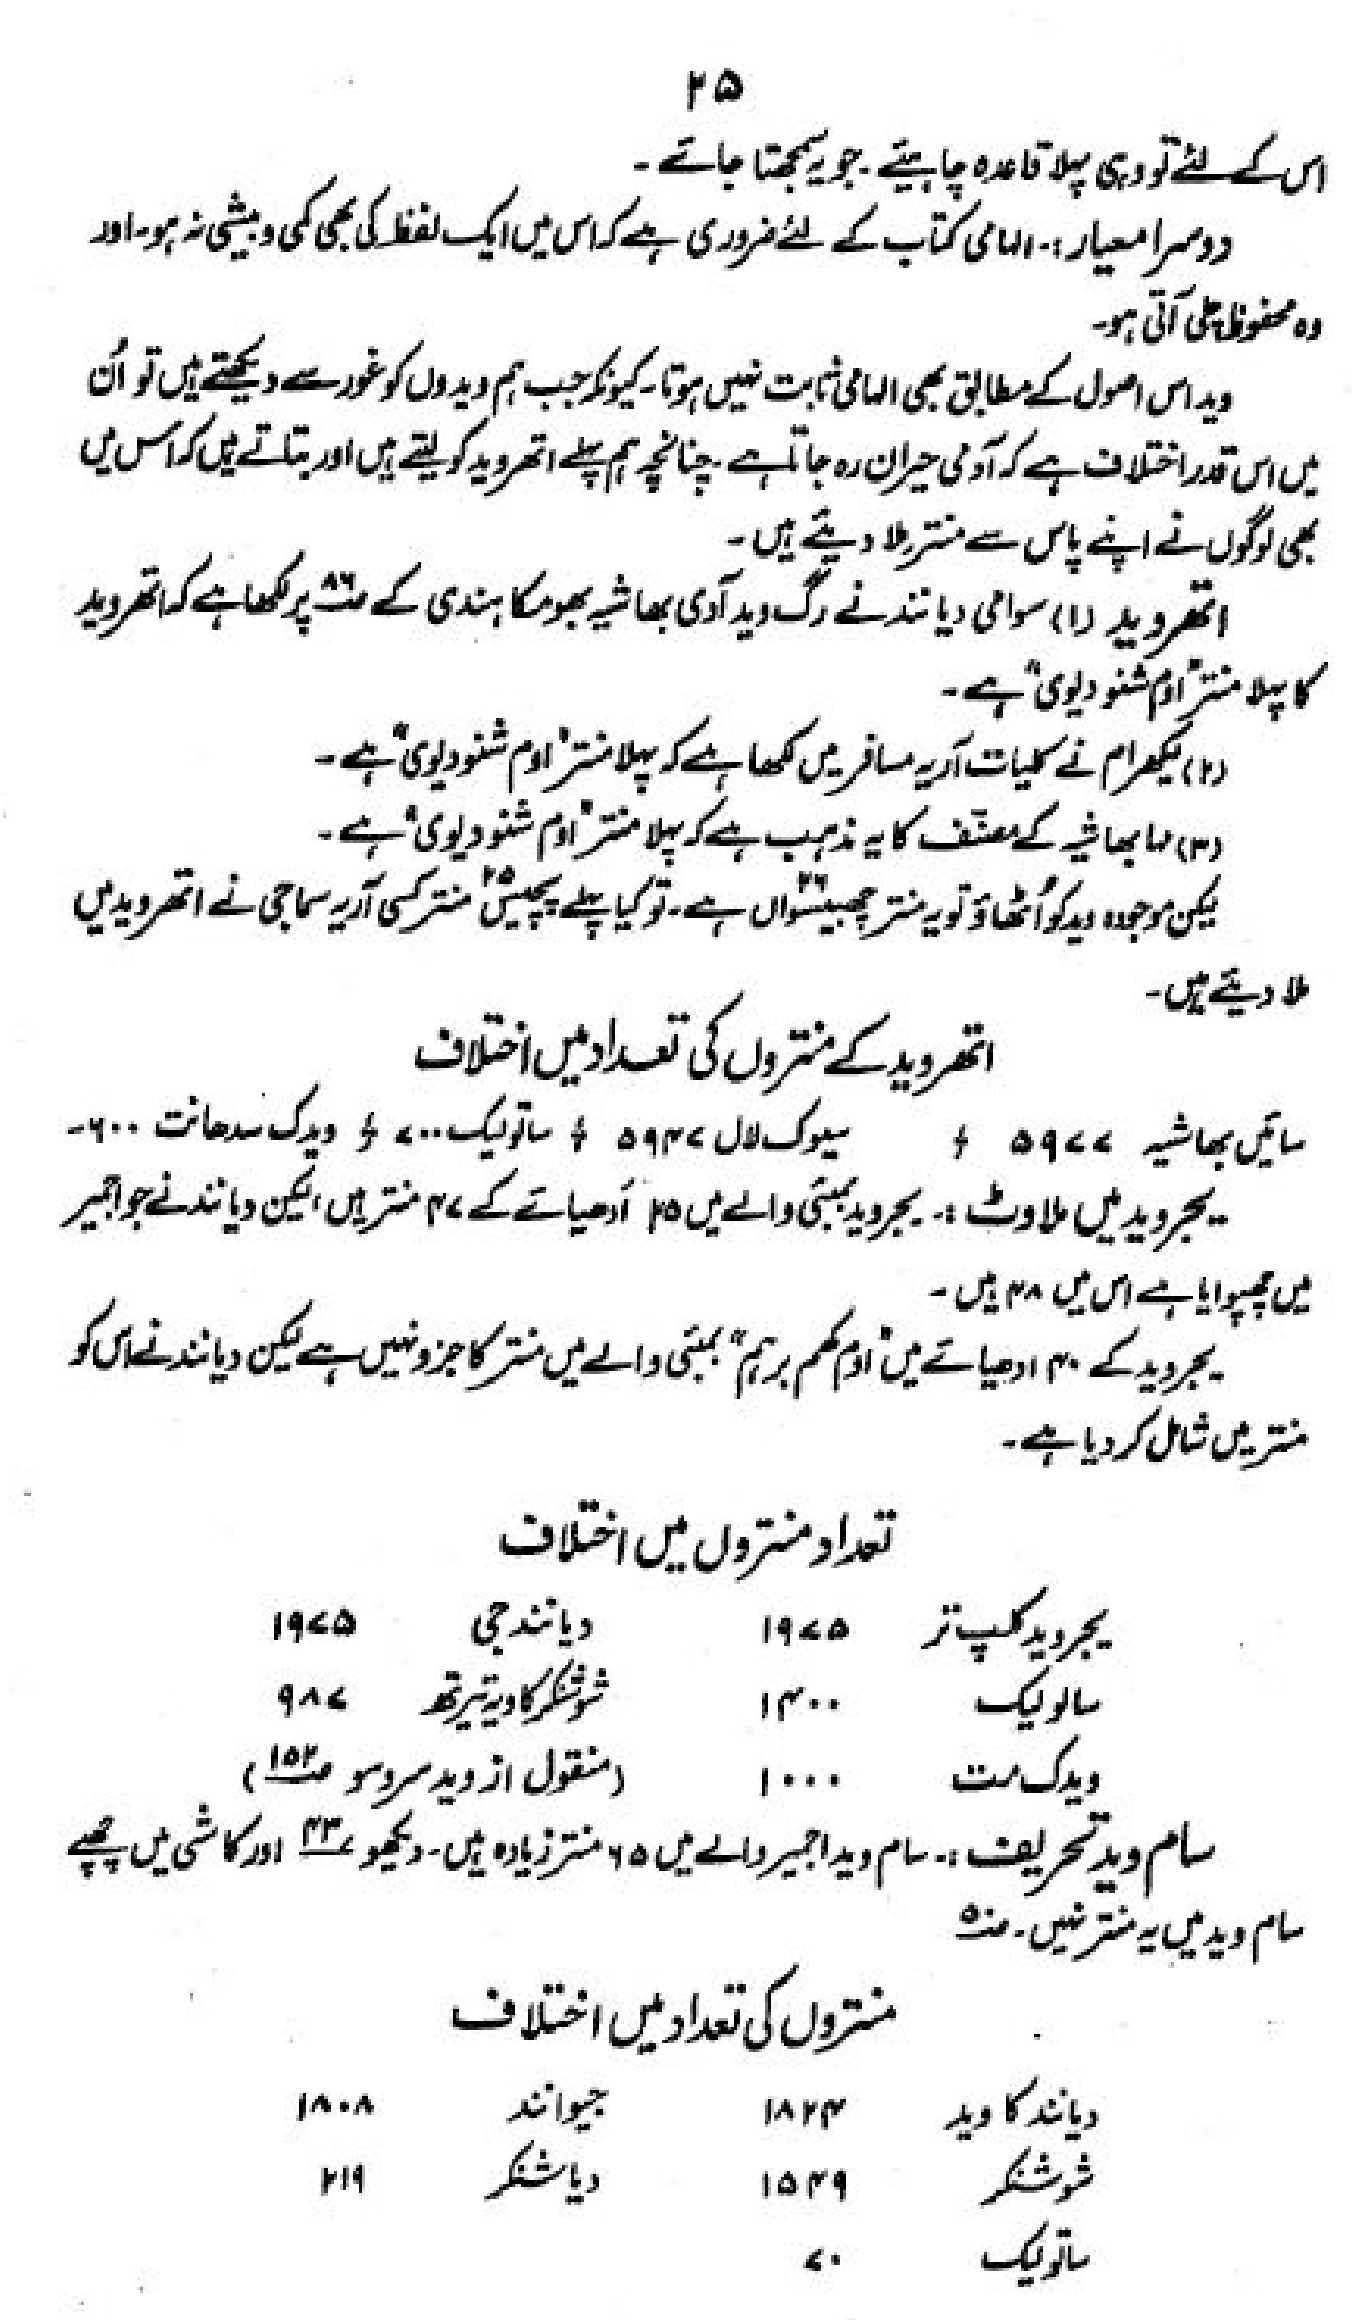 ۲۵
اس کے لئے تو وہی پہلا قاعدہ چاہیئے۔ جو یہ سمجھتا جائے۔
دوسرا معیار:۔ الہامی کتاب کے لئے ضروری ہے کہ اس میں ایک لفظ کی بھی کمی و بیشی نہ ہو۔ اور
وہ محفوظ چلی آتی ہو۔
وید اس اصول کے مطابق بھی الہامی ثابت نہیں ہوتا۔ کیونکہ جب ہم ویدوں کو غور سے دیکھتے ہیں تو اُن
میں اس قدر اختلاف ہے کہ آدمی حیران رہ جاتا ہے۔ چنانچہ ہم پہلے اتھروید کو لیتے ہیں اور بتاتے ہیں کہ اس میں
بھی لوگوں نے اپنے پاس سے منتر ملا دیئے ہیں۔
اتھروید (۱) سوامی دیانند نے رگ وید آدی بھاشیہ بھومکا ہندی کے صفحہ ۸۶ پر لکھا ہے کہ اتھروید
کا پہلا منتر "اوم شنو دیوی" ہے۔
(۲) لیکھرام نے کلیات آریہ مسافر میں لکھا ہے کہ پہلا منتر "اوم شنو دیوی" ہے۔
(۳) مہا بھاشیہ کے مصنّف کا یہ مذہب ہے کہ پہلا منتر "اوم شنو دیوی" ہے۔
لیکن موجودہ وید کو اُٹھاؤ تو یہ منتر چھبیسواں ۲۶ ہے۔ تو کیا پہلے پچیس ۲۵ منتر کسی آریہ سماجی نے اتھروید میں
ملا دیئے ہیں۔
اتھروید کے منتروں کی تعداد میں اختلاف
سائیں بھاشیہ ۵۹۷۷ ؛ سیوک لال ۵۹۴۷ ؛ ساتولیک ۷۰۰ ؛ ویدک سدھانت ۶۰۰۔
یجروید میں ملاوٹ:۔ یجروید بمبئی والے میں ۲۵ اَدھیائے کے ۴۷ منتر ہیں، لیکن دیانند نے جو اجمیر
میں چھپوایا ہے اس میں ۴۸ ہیں۔
یجروید کے ۴۰ ادھیائے میں "اوم کھم برہم" بمبئی والے میں منتر کا جزو نہیں ہے لیکن دیانند نے اس کو
منتر میں شامل کر دیا ہے۔
تعداد منتروں میں اختلاف
یجروید کلپ تر ۱۹۷۵ دیانند جی ۱۹۷۵
سالولیک ۱۴۰۰ شوشنکر کاویہ تیرتھ ۹۸۷
ویدک مت ۱۰۰۰ (منقول از وید سروسو صفحہ ۱۵۲)
سام وید تحریف:۔ سام وید اجمیر والے میں ۶۵ منتر زیادہ ہیں۔ دیکھو ۴۳ اور کاشی میں چھپے
سام وید میں یہ منتر نہیں۔ صفحہ ۵
منتروں کی تعداد میں اختلاف
دیانند کا وید ۱۸۲۴ جیوانند ۱۸۰۸
شوشنکر ۱۵۴۹ دیاشنکر ۲۱۹
ساتولیک ۷۰